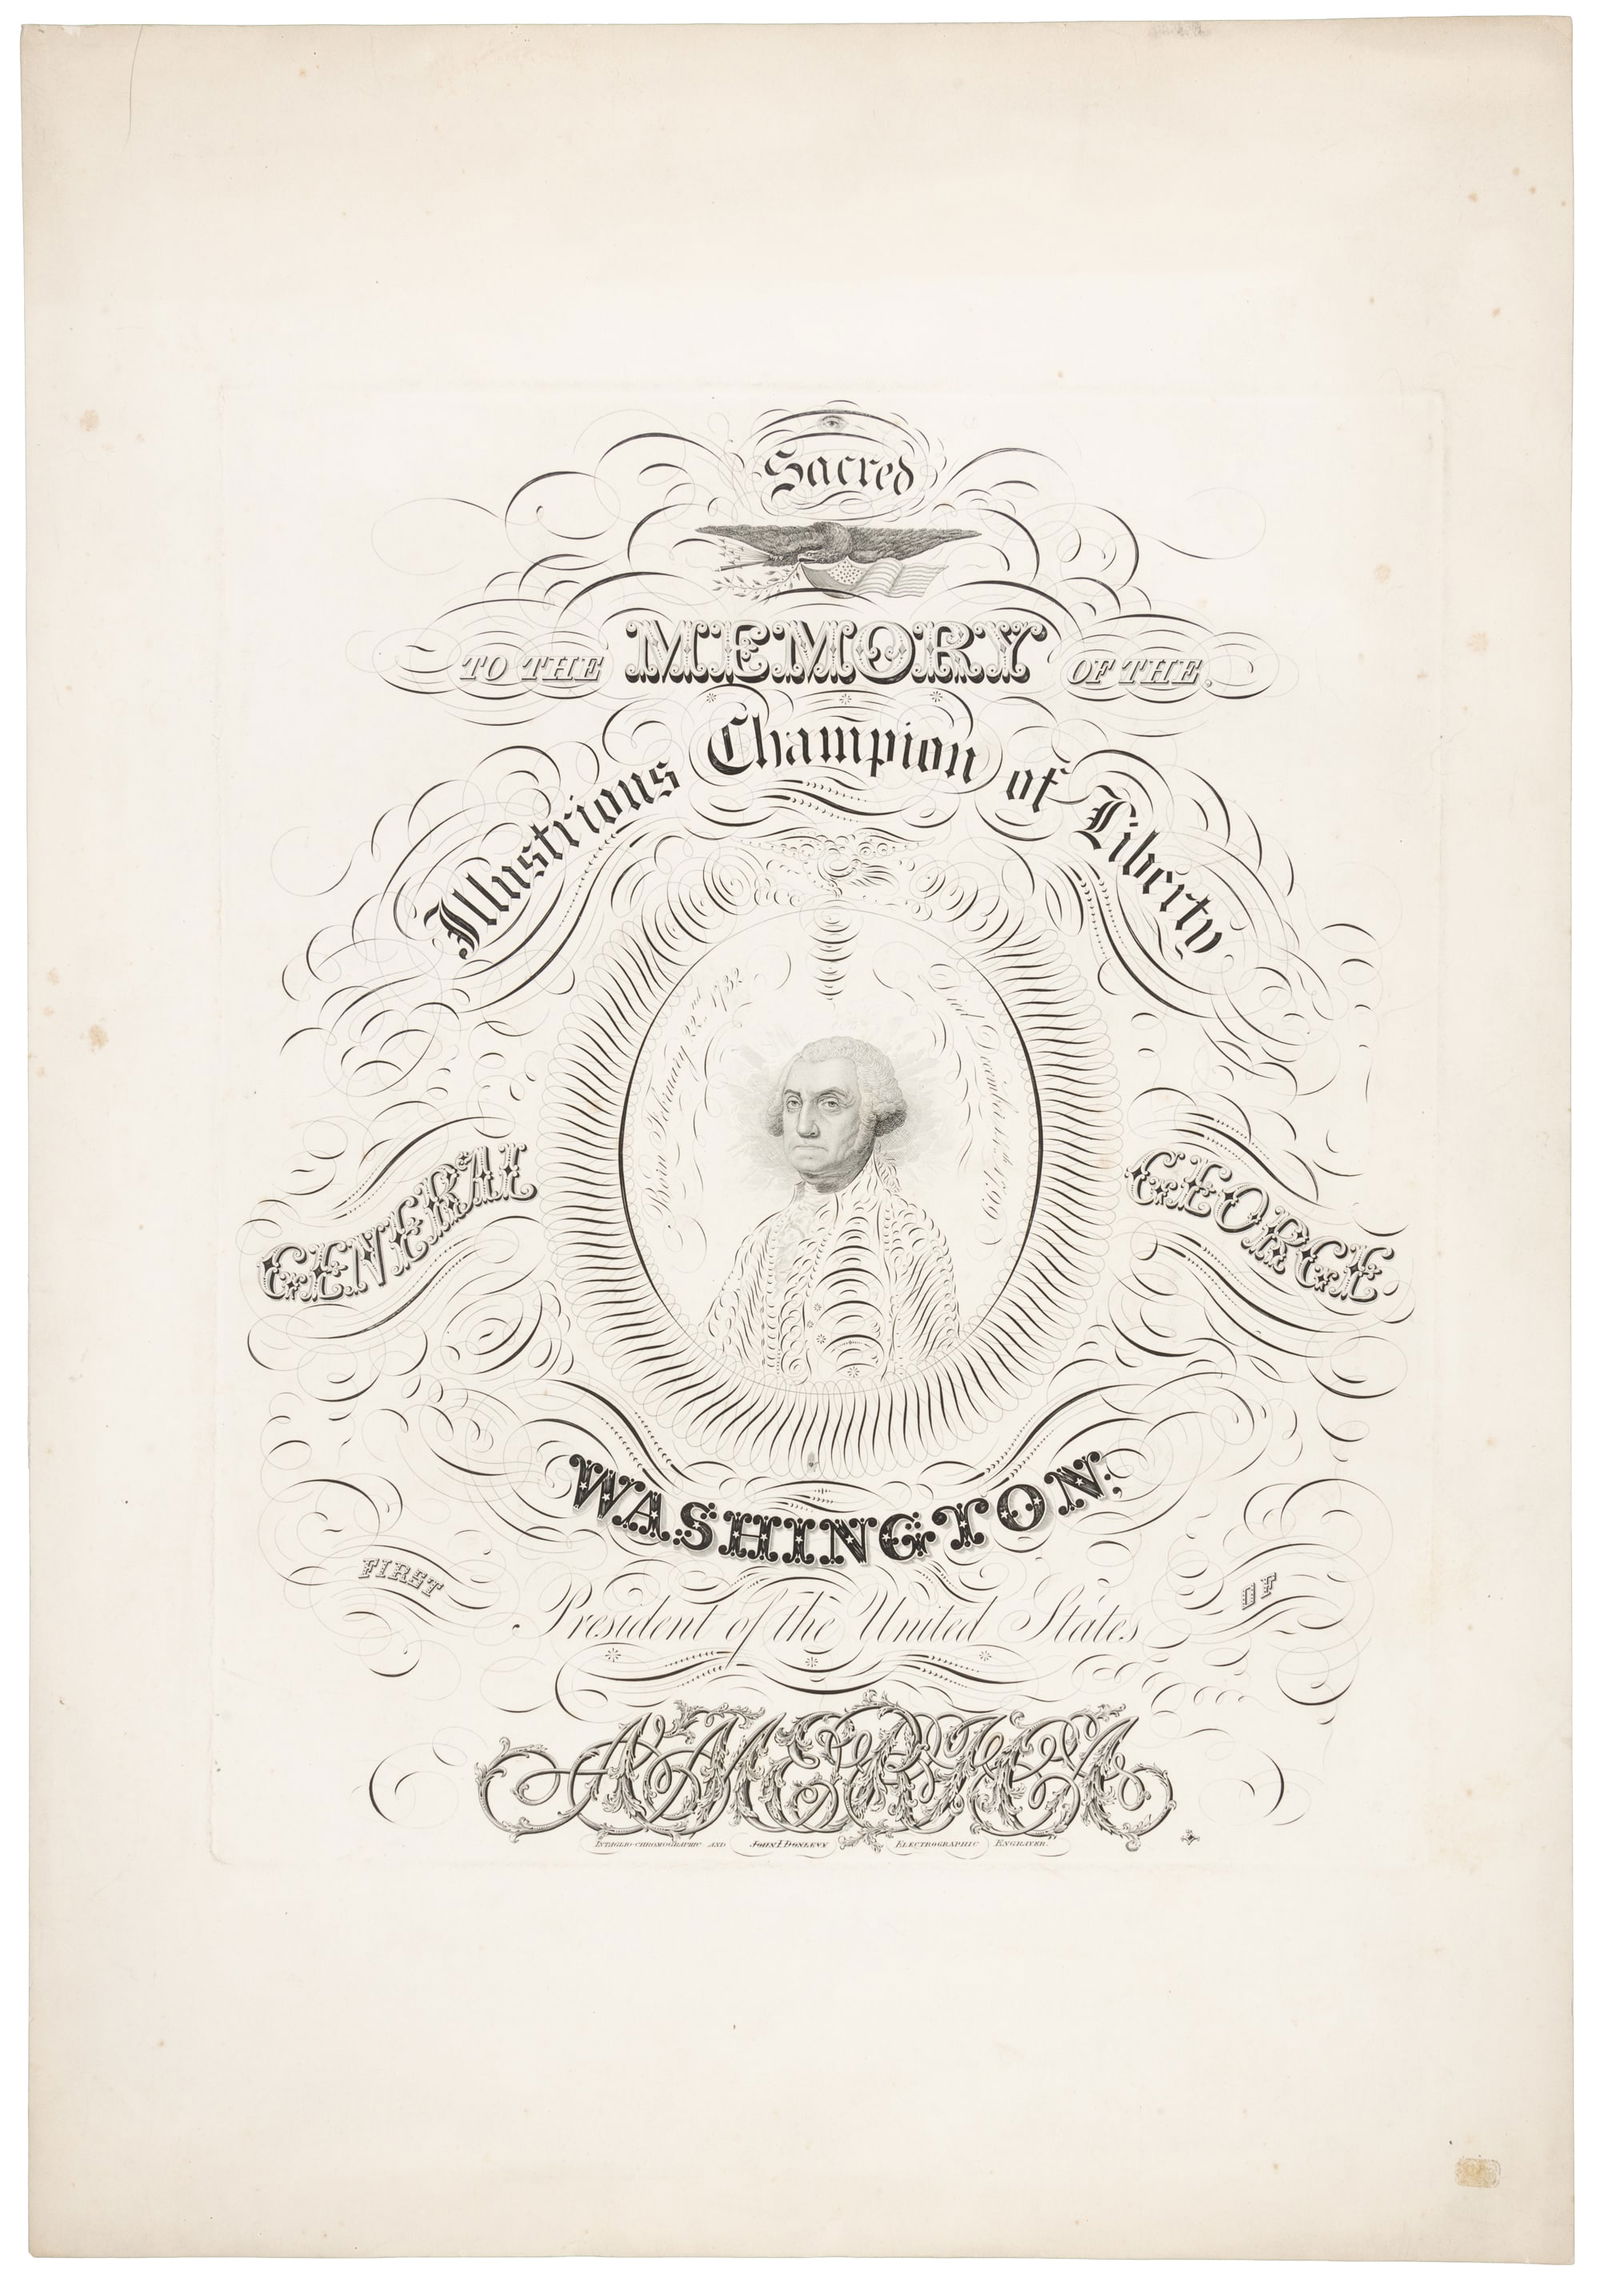 Sacred
TO THE MEMORY OF THE
Illustrious Champion of Liberty
Born February 22nd 1732
Died December 14th 1799
GENERAL GEORGE
WASHINGTON
FIRST President of the United States OF
AMERICA
INTAGLIO-CHROMOGRAPHIC AND JOHN I DONLEVY ELECTROGRAPHIC ENGRAVER